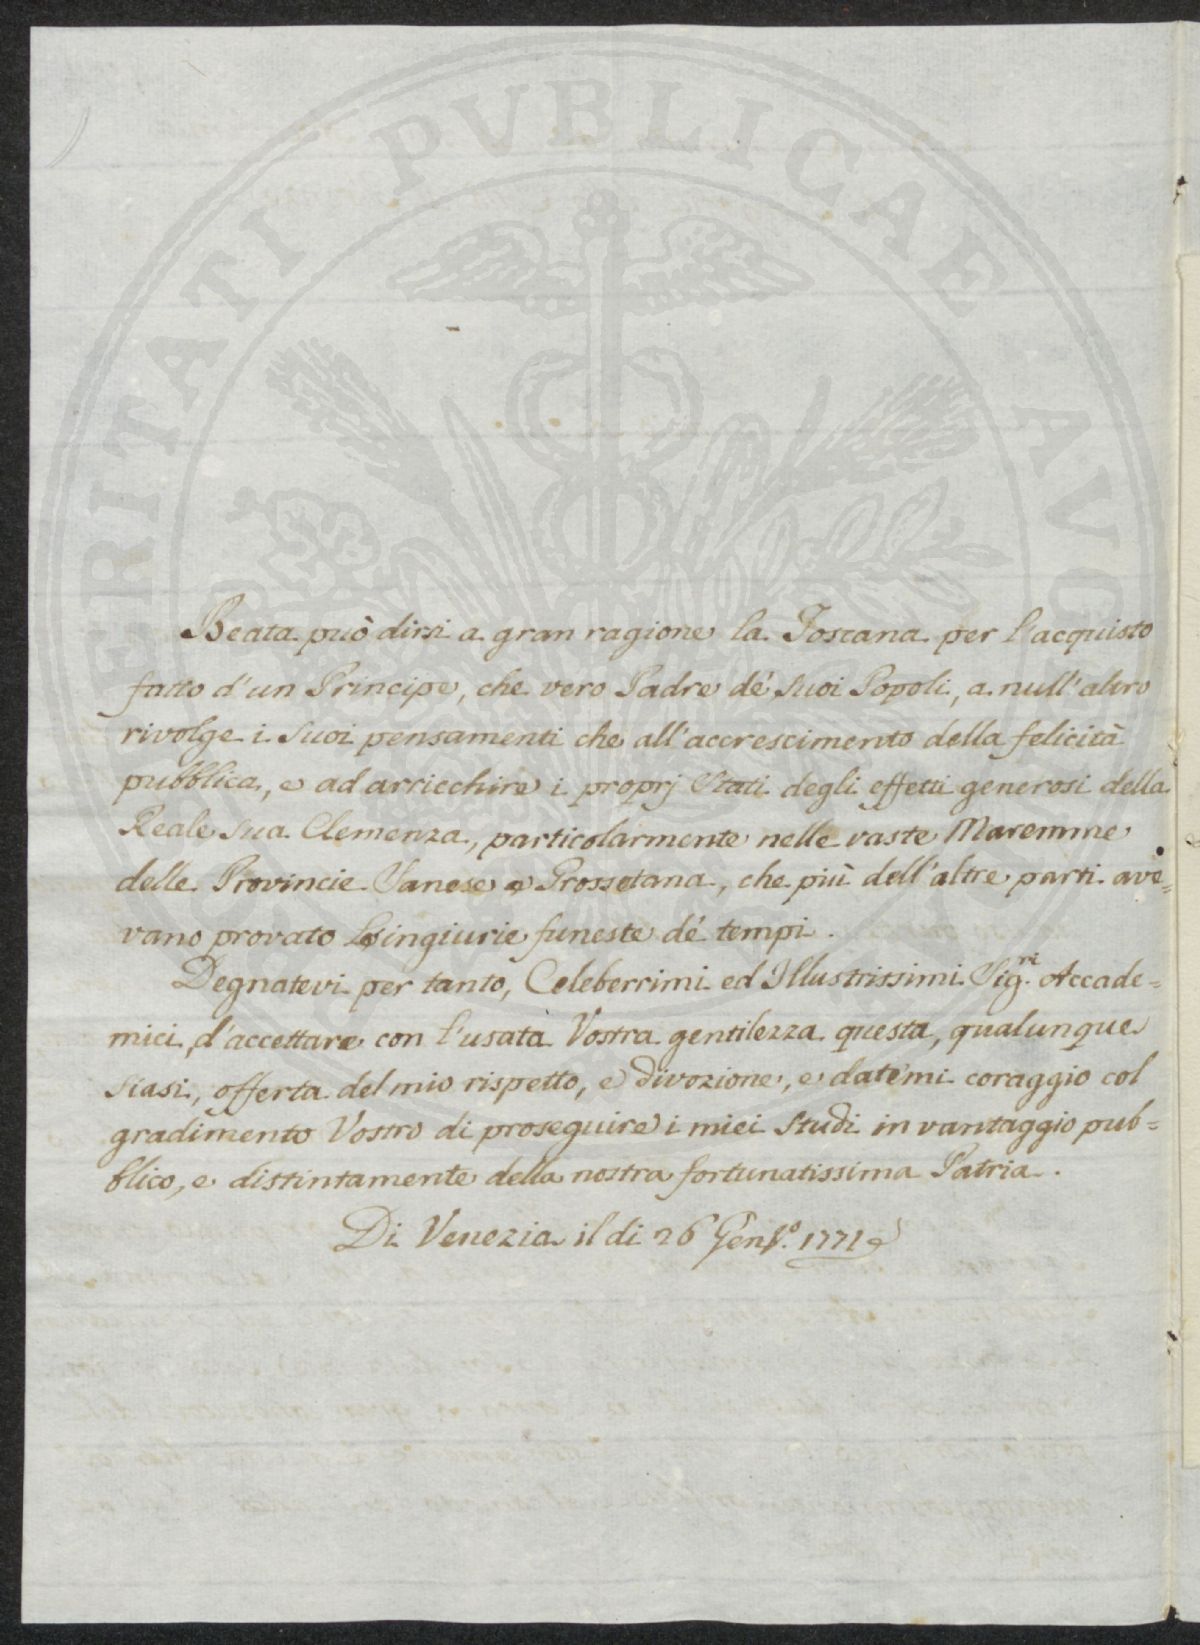 PROSPERITATI PVBLICAE AVGENDAE
Beata può dirsi a gran ragione la Toscana per l'acquisto
fatto d'un Principe, che vero Padre de' suoi Popoli, a null'altro
rivolge i suoi pensamenti che all'accrescimento della felicità
pubblica, e ad arricchire i proprj Stati degli effetti generosi della
Reale sua Clemenza, particolarmente nelle vaste Maremme
delle Provincie Sanese e Grossetana, che più dell'altre parti ave=
vano provato le ingiurie funeste de' tempi.
Degnatevi per tanto, Celeberrimi ed Illustrissimi Sig.ri Accade=
mici, d'accettare con l'usata Vostra gentilezza questa, qualunque
siasi, offerta del mio rispetto, e divozione, e datemi coraggio col
gradimento Vostro di proseguire i miei studi in vantaggio pub=
blico, e distintamente della nostra fortunatissima Patria.
Di Venezia il di 26 1771